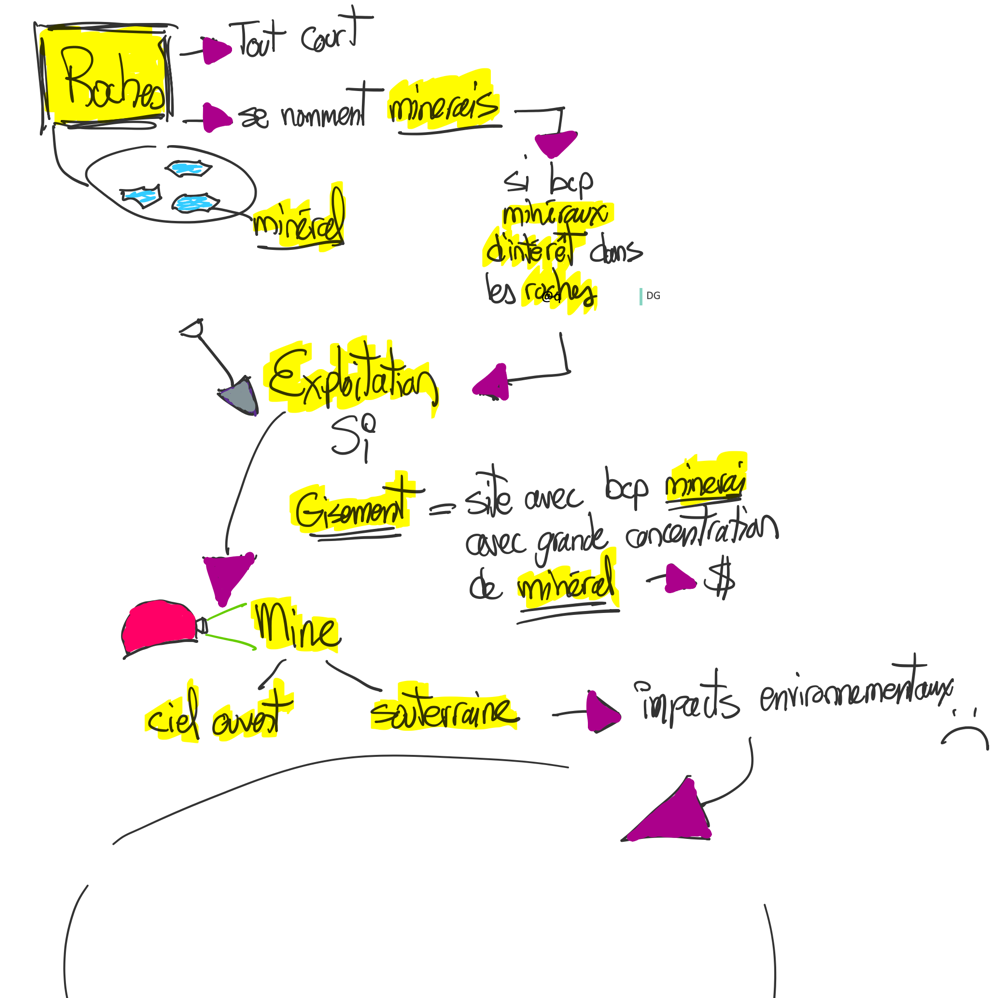 Roches
Tout court
se nomment minerais
minéral
si bcp
minéraux
d'intérêt dans
les roches
DG
Exploitation
Si
Gisement = site avec bcp minerai
avec grande concentration
de minéral $
Mine
ciel ouvert
souterraine
impacts environnementaux